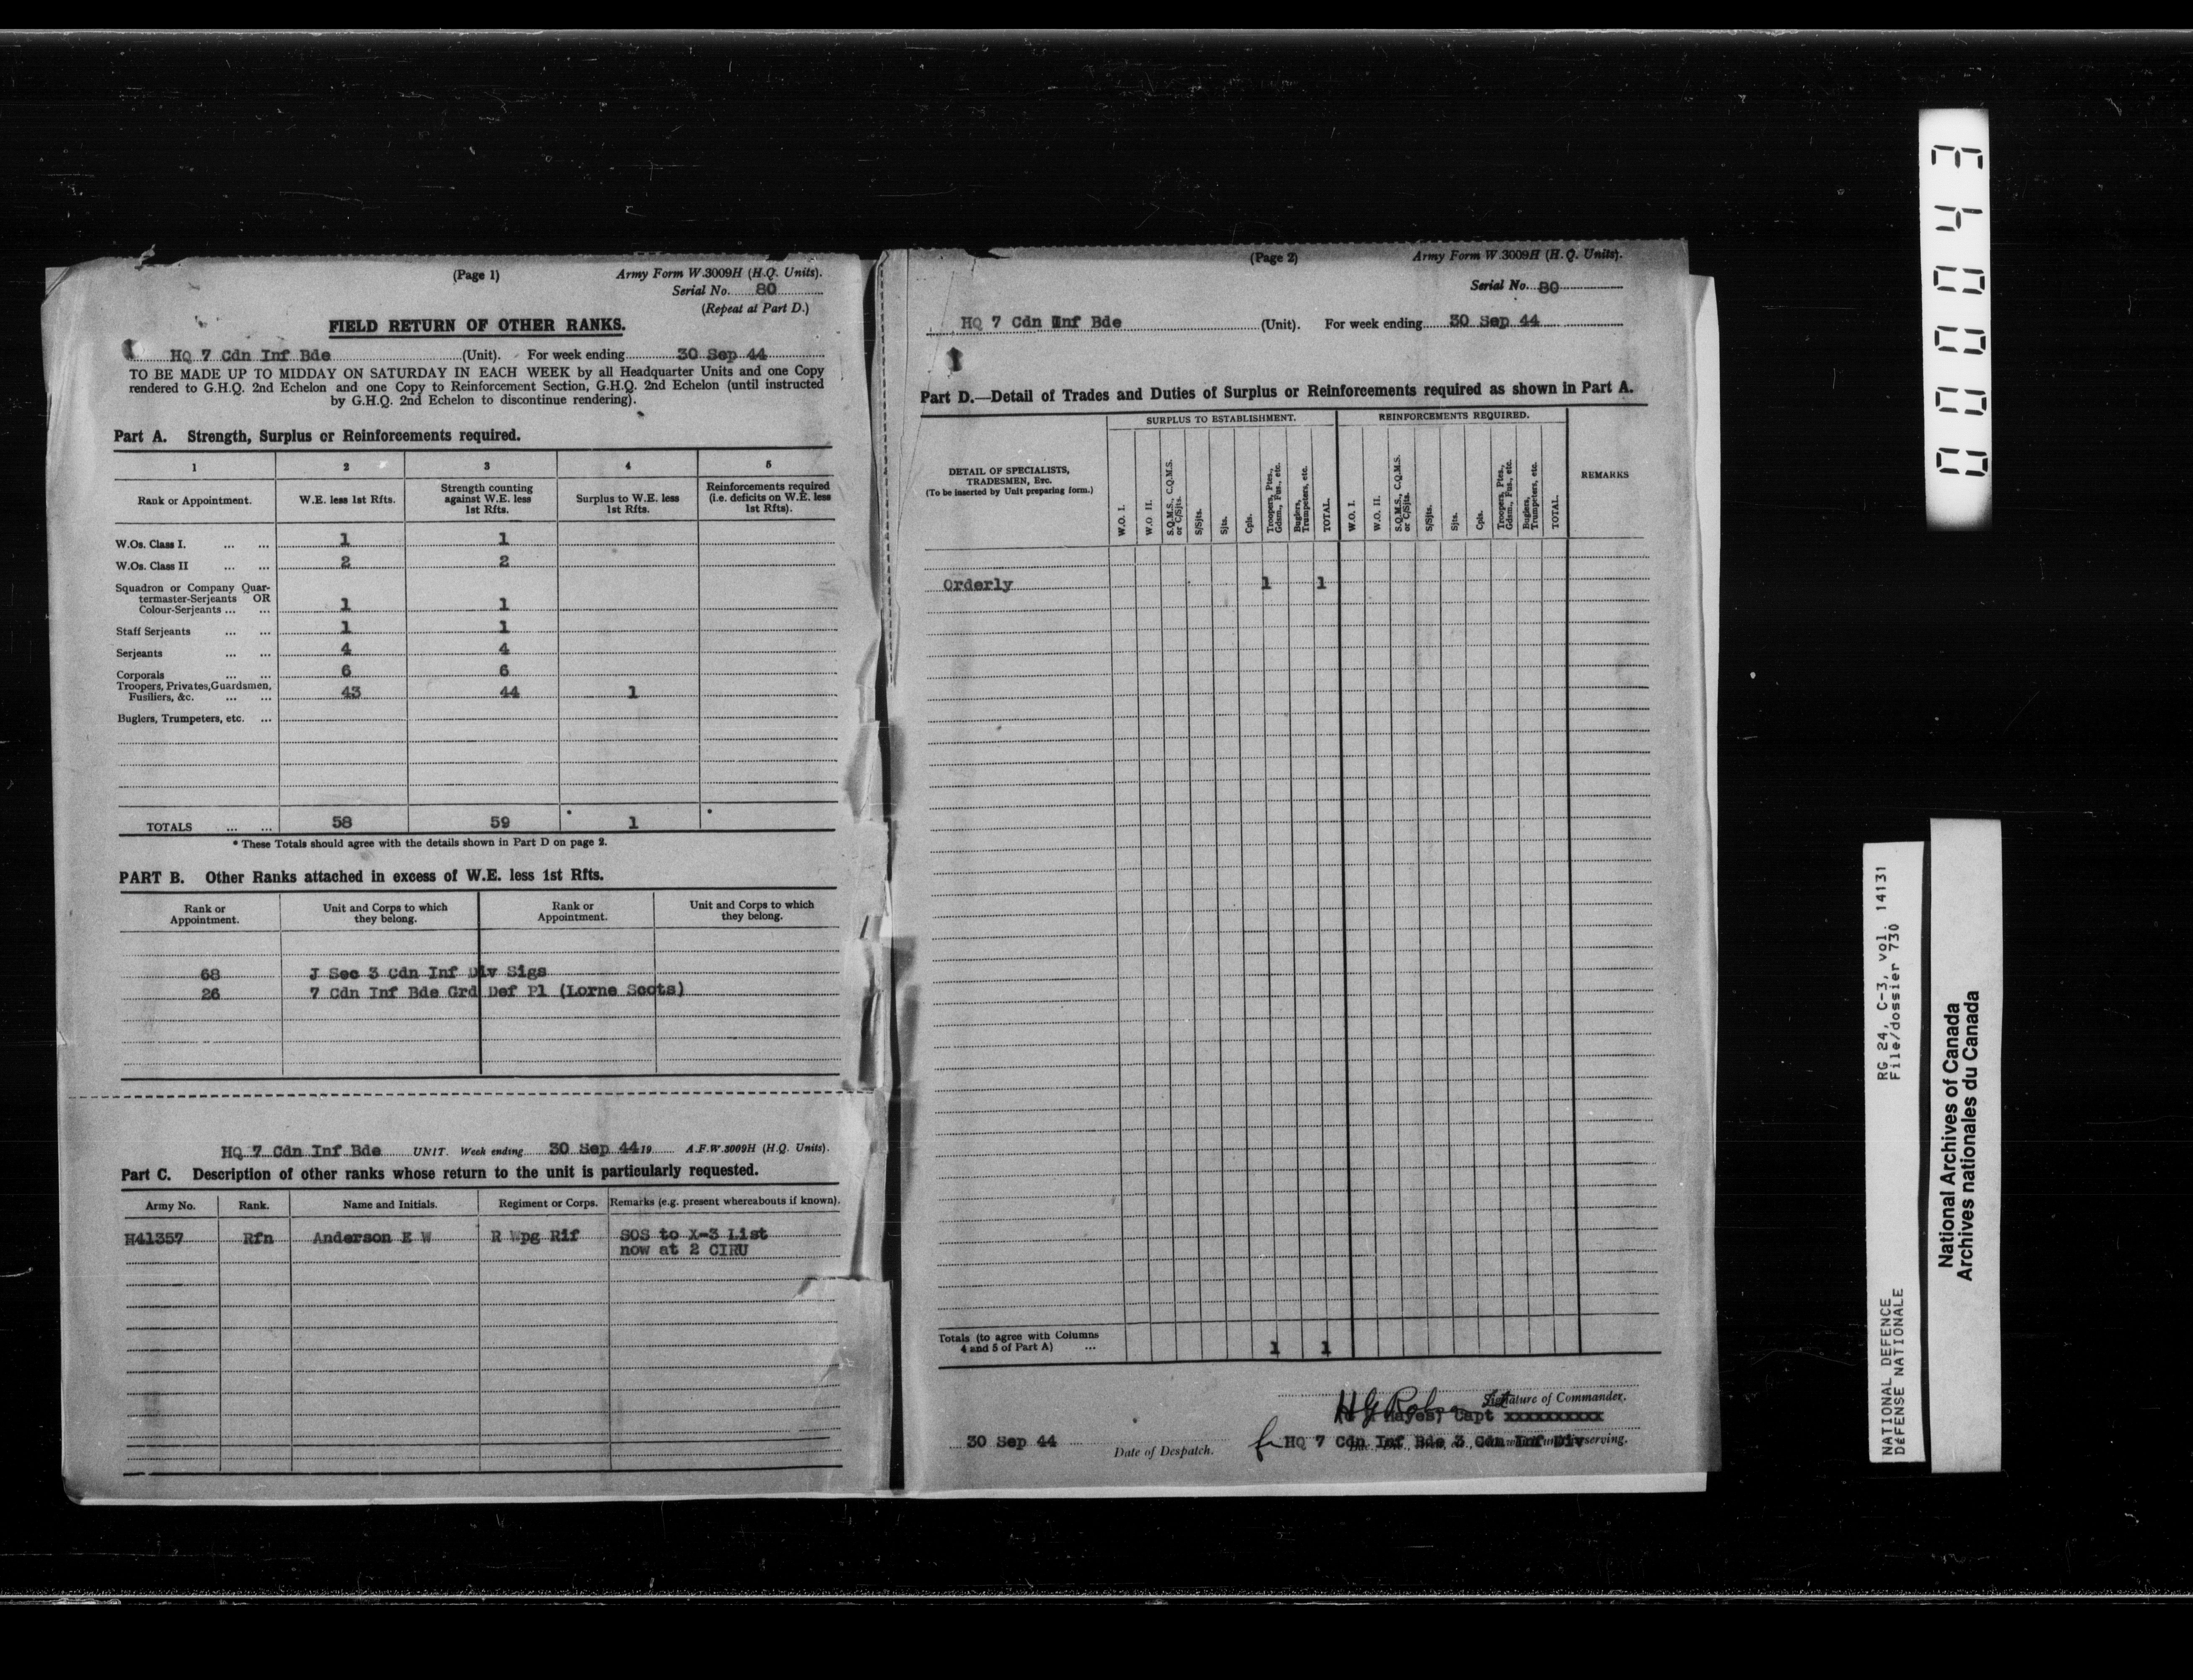 (Page 1)
Army Form W.3009H (H.Q. Units).
Serial No. 80
(Repeat at Part D.)
FIELD RETURN OF OTHER RANKS.
HQ 7 Cdn Inf Bde (Unit). For week ending 30 Sep 44
TO BE MADE UP TO MIDDAY ON SATURDAY IN EACH WEEK by all Headquarter Units and one Copy
rendered to G.H.Q. 2nd Echelon and one Copy to Reinforcement Section, G.H.Q. 2nd Echelon (until instructed
by G.H.Q. 2nd Echelon to discontinue rendering).
Part A. Strength, Surplus or Reinforcements required.
1 2 3 4 5
Rank or Appointment. W.E. less 1st Rfts. Strength counting against W.E. less 1st Rfts. Surplus to W.E. less 1st Rfts. Reinforcements required (i.e. deficits on W.E. less 1st Rfts).
W.Os. Class I. ... ... 1 1
W.Os. Class II ... ... 2 2
Squadron or Company Quar-
termaster-Serjeants OR
Colour-Serjeants ... ... 1 1
Staff Serjeants ... ... 1 1
Serjeants ... ... 4 4
Corporals ... ... 6 6
Troopers, Privates, Guardsmen,
Fusiliers, &c. ... ... 43 44 1
Buglers, Trumpeters, etc. ...
TOTALS ... ... 58 59 * 1 *
* These Totals should agree with the details shown in Part D on page 2.
PART B. Other Ranks attached in excess of W.E. less 1st Rfts.
Rank or Appointment. Unit and Corps to which they belong. Rank or Appointment. Unit and Corps to which they belong.
68 J Sec 3 Cdn Inf Div Sigs
26 7 Cdn Inf Bde Grd Def Pl (Lorne Scots)
HQ 7 Cdn Inf Bde UNIT. Week ending 30 Sep 44 19 A.F.W.3009H (H.Q. Units).
Part C. Description of other ranks whose return to the unit is particularly requested.
Army No. Rank. Name and Initials. Regiment or Corps. Remarks (e.g. present whereabouts if known).
H41357 Rfn Anderson E W R Wpg Rif SOS to X-3 List
now at 2 CIRU
(Page 2)
Army Form W.3009H (H.Q. Units).
Serial No. 80
HQ 7 Cdn Inf Bde (Unit). For week ending 30 Sep 44
Part D.—Detail of Trades and Duties of Surplus or Reinforcements required as shown in Part A.
SURPLUS TO ESTABLISHMENT. REINFORCEMENTS REQUIRED.
DETAIL OF SPECIALISTS, TRADESMEN, Etc.
(To be inserted by Unit preparing form.)
W.O. I. W.O II. S.Q.M.S., C.Q.M.S. or C/Sjts. S/Sjts. Sjts. Cpls. Troopers, Ptes., Gdsm., Fus., etc. Buglers, Trumpeters, etc. TOTAL. W.O. I. W.O. II. S.Q.M.S., C.Q.M.S. or C/Sjts. S/Sjts. Sjts. Cpls. Troopers, Ptes., Gdsm., Fus., etc. Buglers, Trumpeters, etc. TOTAL. REMARKS
Orderly 1 1
Totals (to agree with Columns
4 and 5 of Part A) ... 1 1
Signature of Commander.
Hayes, Capt xxxxxxxxxx
30 Sep 44 Date of Despatch. HQ 7 Cdn Inf Bde 3 Cdn Inf Div serving.
000043
RG 24, C-3, vol. 14131
File/dossier 730
NATIONAL DEFENCE
DÉFENSE NATIONALE
National Archives of Canada
Archives nationales du Canada